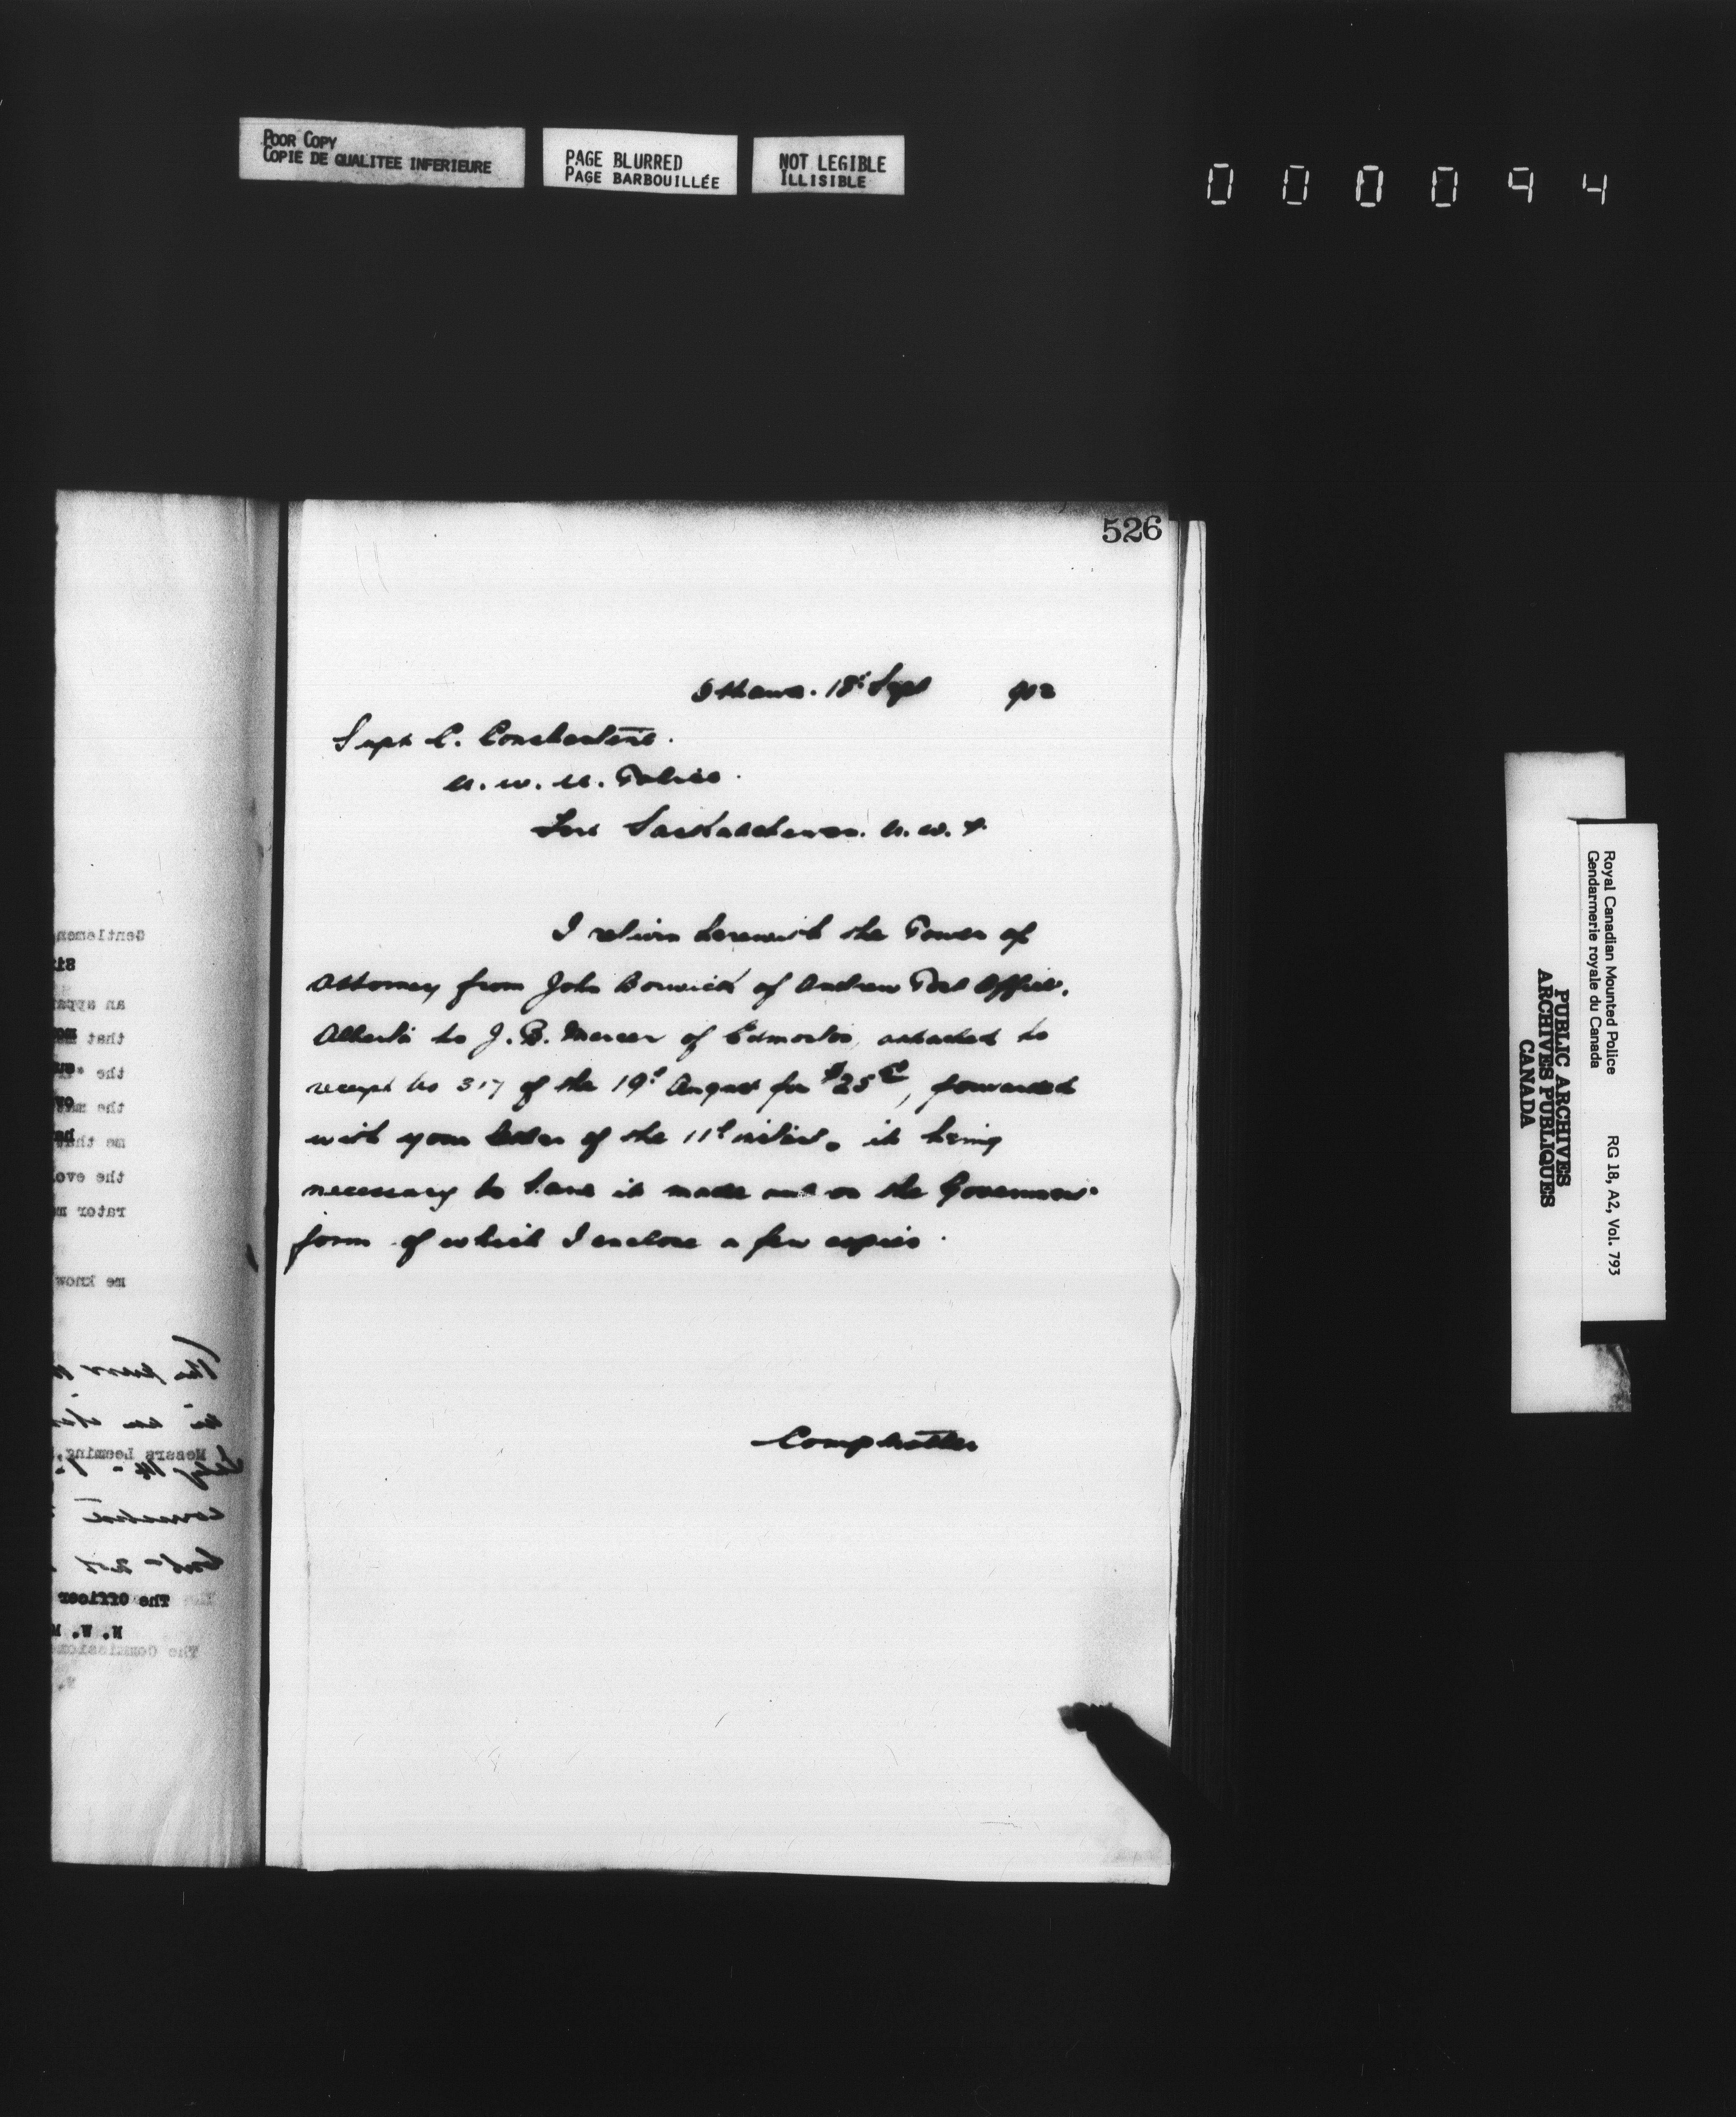 POOR COPY
COPIE DE QUALITEE INFERIEURE
PAGE BLURRED
PAGE BARBOUILLÉE
NOT LEGIBLE
ILLISIBLE
000094
526
Ottawa. 18t Sept 902
Supt C. Constantine.
N. W. M. Police.
Fort Saskatchewan. N. W. T
I return herewith the Power of
Attorney from John Borwick of Andrew Post Office,
Alberta to J. B. Mercer of Edmonton, attached to
receipt No 317 of the 19t August for $25, forwarded
with your letter of the 11t instant. it being
necessary to have it made out on the Government
form of which I enclose a few copies.
Comptroller
Gentlemen
an
that
the
the
me that
the
rator
me know
Messrs Leeming,
The Officer
N. W.
The
Royal Canadian Mounted Police RG 18, A2, Vol. 793
Gendarmerie royale du Canada
PUBLIC ARCHIVES
ARCHIVES PUBLIQUES
CANADA